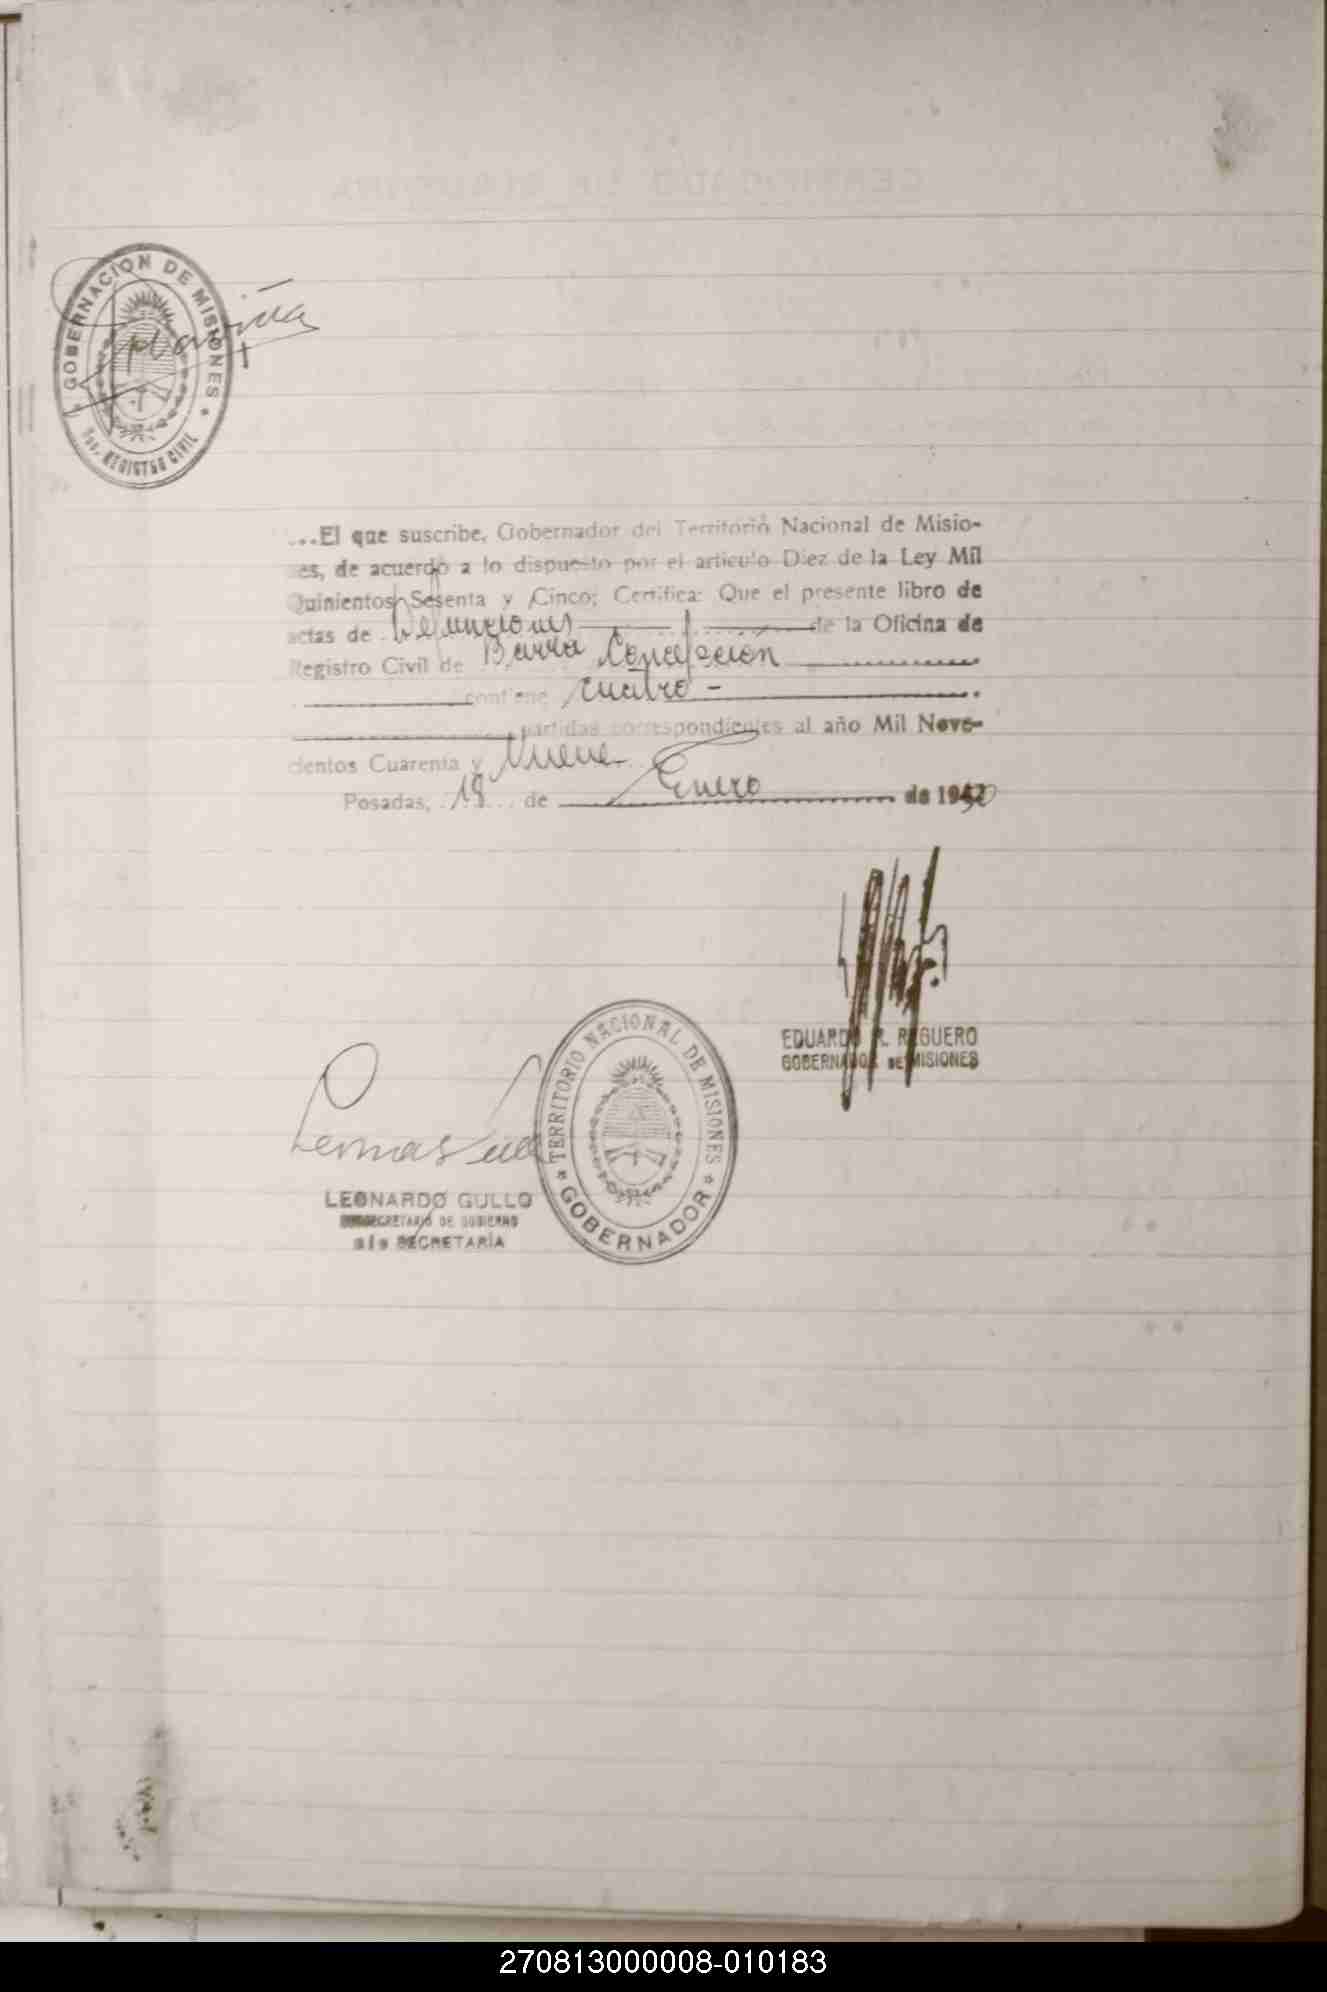 GOBERNACION DE MISIONES
REGISTRO CIVIL
...El que suscribe, Gobernador del Territorio Nacional de Misio-
es, de acuerdo a lo dispuesto por el artículo Diez de la Ley Mil
Quinientos Sesenta y Cinco; Certifica: Que el presente libro de
actas de Defunciones de la Oficina de
Registro Civil de Barra Concepción
contiene cuatro -
partidas correspondientes al año Mil Nove-
cientos Cuarenta y Nueve
Posadas, 18 de Enero de 1950
EDUARDO R. REGUERO
GOBERNADOR DE MISIONES
TERRITORIO NACIONAL DE MISIONES
GOBERNADOR
LEONARDO GULLO
SUBSECRETARIO DE GOBIERNO
a/c SECRETARÍA
270813000008-010183